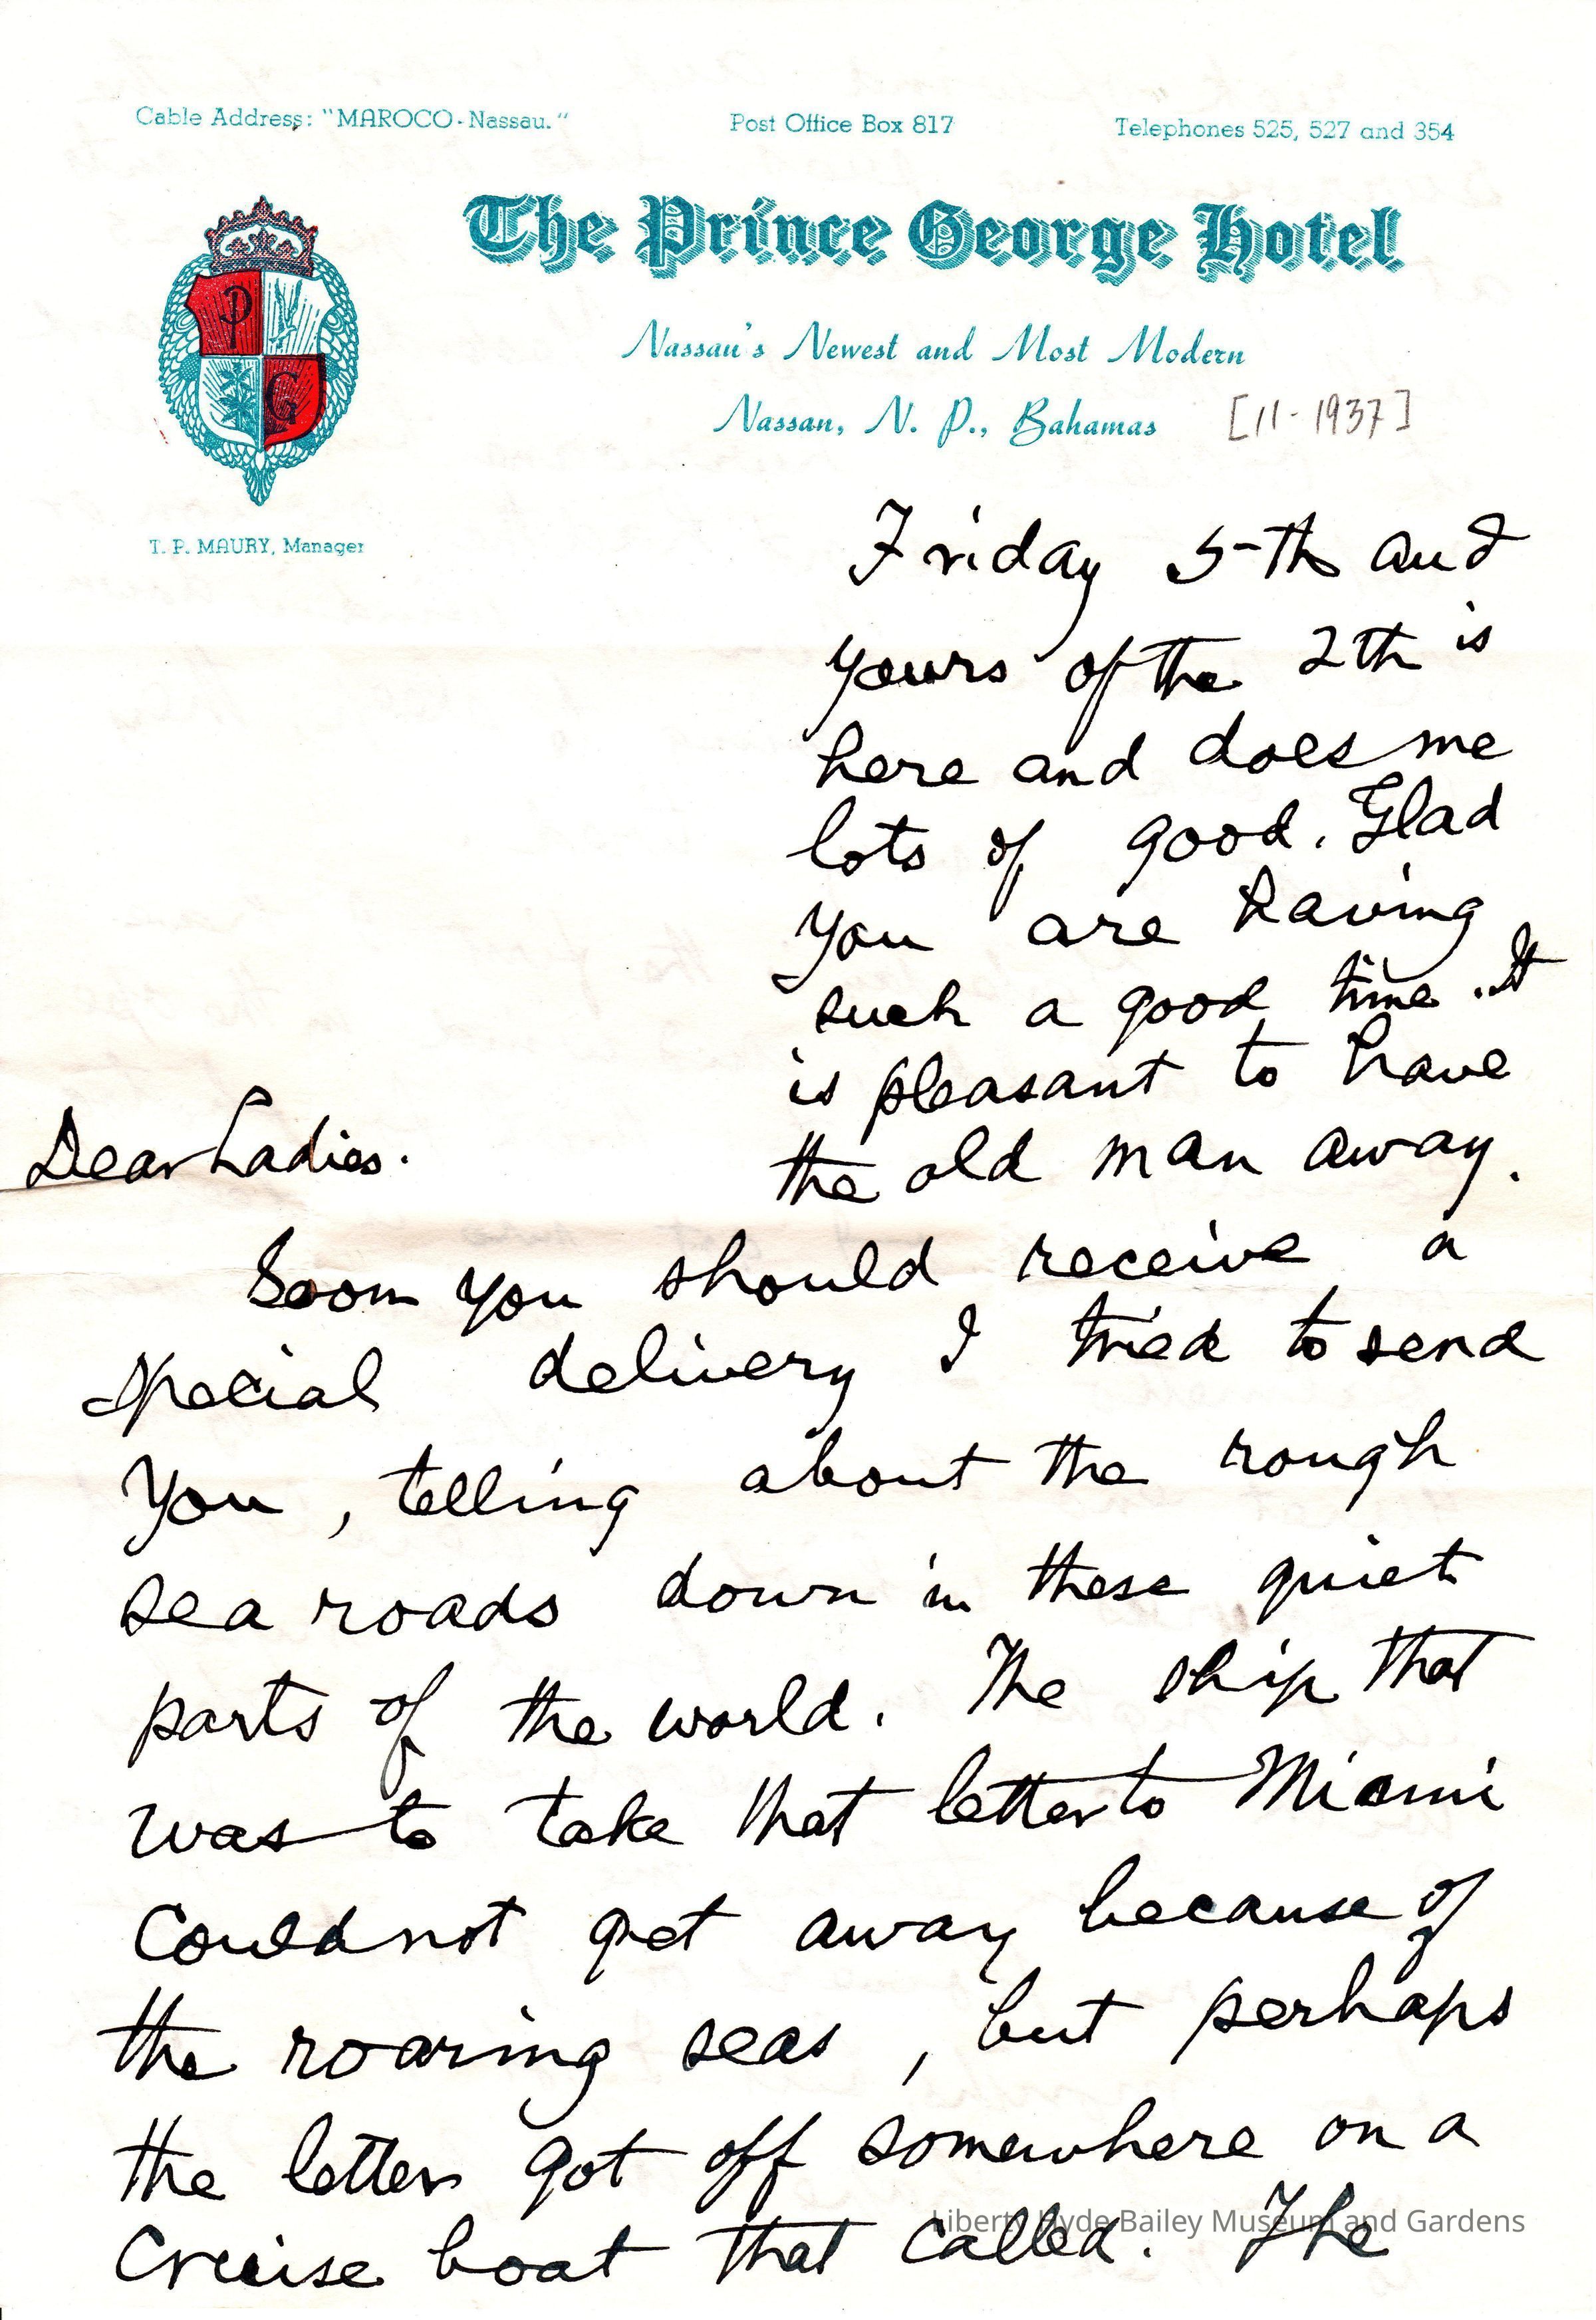 Cable Address: "MAROCO-Nassau."
Post Office Box 817
Telephones 525, 527 and 354
The Prince George Hotel
Nassau's Newest and Most Modern
Nassau, N. P., Bahamas
[11-1937]
P
G
T. P. MAURY, Manager
Friday 5-th and
yours of the 2th is
here and does me
lots of good. Glad
you are having
such a good time. It
is pleasant to have
the old man away.
Dear Ladies.
Soon you should receive a
special delivery I tried to send
you, telling about the rough
sea roads down in these quiet
parts of the world. The ship that
was to take that letter to Miami
could not get away because of
the roaring seas, but perhaps
the letter got off somewhere on a
cruise boat that called. The
Liberty Hyde Bailey Museum and Gardens